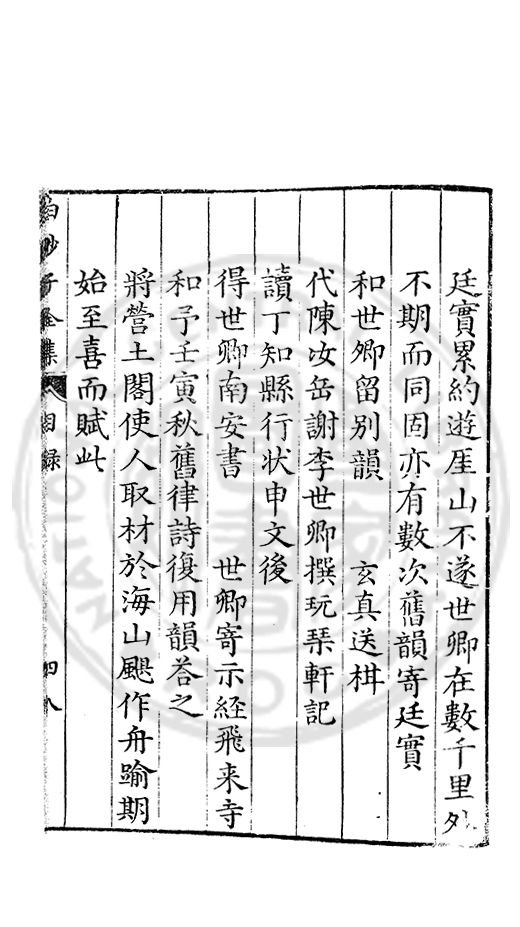 廷實累約遊厓山不遂世卿在數千里外
不期而同固亦有數次舊韻寄廷實
和世卿留別韻 玄真送椪
代陳汝岳謝李世卿撰玩琹軒記
讀丁知縣行状申文後
得世卿南安書 世卿寄示経飛来寺
和予壬寅秋舊律詩復用韻荅之
將營土閣使人取材於海山颶作舟踰期
始至喜而賦此
白沙子全集 目録 四八